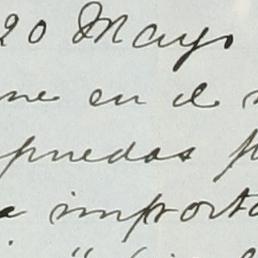 20 Mayo
en el
puedas
a importa